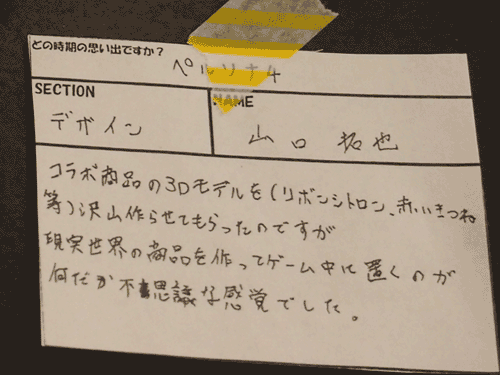 どの時期の思い出ですか?
ペルソナ4
SECTION
NAME
デザイン
山口 拓也
コラボ商品の3Dモデルを(リボンシトロン、赤いきつね
等)沢山作らせてもらったのですが
現実世界の商品を作ってゲーム中に置くのが
何だか不思議な感覚でした。